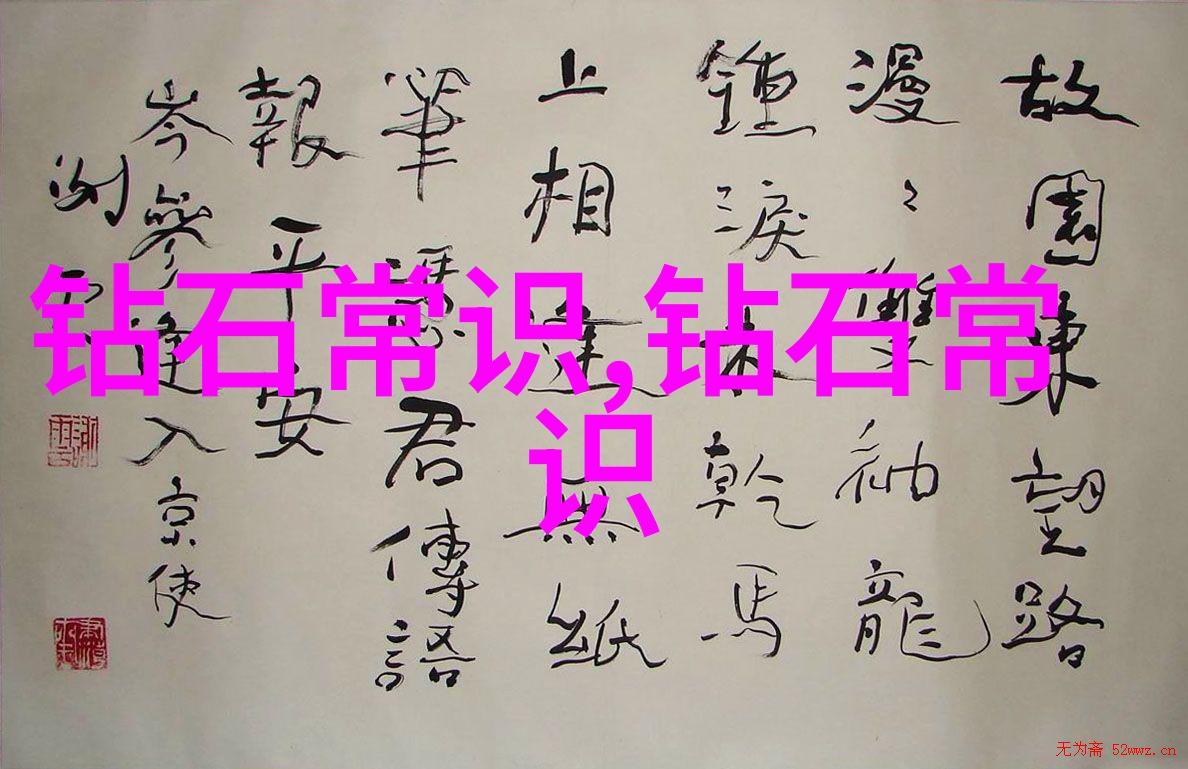 故園東望路
漫〻雙袖龍
鍾淚未乾馬
上相逢無紙
筆憑君傳語
報平安
岑參逢入京使
钻石常识,钻石常
识
无为斋 52wwz.cn